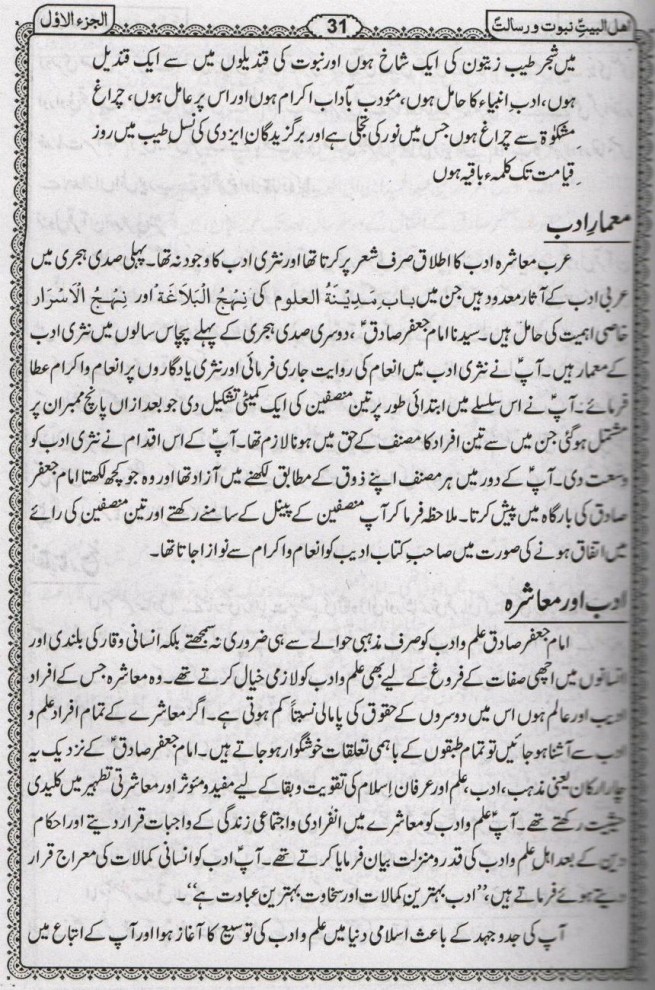 اھل البیتؑ نبوت و رسالت
31
الجزء الاوّل
میں شجرِ طیب زیتون کی ایک شاخ ہوں اور نبوت کی قندیلوں میں سے ایک قندیل
ہوں، ادبِ انبیاء کا حامل ہوں، مئودب بآداب اکرام ہوں اور اس پر عامل ہوں، چراغِ
مشکوٰۃ سے چراغ ہوں جس میں نور کی تجلی ہے اور برگزیدگان ایزدی کی نسل طیب میں روز
قیامت تک کلمہء باقیہ ہوں
معمارِ ادب
عرب معاشرہ ادب کا اطلاق صرف شعر پر کرتا تھا اور نثری ادب کا وجود نہ تھا۔ پہلی صدی ہجری میں
عربی ادب کے آثار معدود ہیں جن میں باب مَدِیْنَۃُ العلوم کی نِہْجُ الْبَلَاغَۃ اور نِہْجُ الْاَسْرَار
خاصی اہمیت کی حامل ہیں۔ سیدنا امام جعفر صادقؑ، دوسری صدی ہجری کے پہلے پچاس سالوں میں نثری ادب
کے معمار ہیں۔ آپؑ نے نثری ادب میں انعام کی روایت جاری فرمائی اور نثری یادگاروں پر انعام واکرام عطا
فرمائے۔ آپؑ نے اس سلسلے میں ابتدائی طور پر تین منصفین کی ایک کمیٹی تشکیل دی جو بعد ازاں پانچ ممبران پر
مشتمل ہوگئی جن میں سے تین افراد کا مصنف کے حق میں ہونا لازم تھا۔ آپؑ کے اس اقدام نے نثری ادب کو
وسعت دی۔ آپؑ کے دور میں ہر مصنف اپنے ذوق کے مطابق لکھنے میں آزاد تھا اور وہ جو کچھ لکھتا امام جعفر
صادق کی بارگاہ میں پیش کرتا۔ ملاحظہ فرما کر آپ منصفین کے پینل کے سامنے رکھتے اور تین منصفین کی رائے
میں اتفاق ہونے کی صورت میں صاحبِ کتاب ادیب کو انعام واکرام سے نوازا جاتا تھا۔
ادب اور معاشرہ
امام جعفر صادق علم وادب کو صرف مذہبی حوالے سے ہی ضروری نہ سمجھتے بلکہ انسانی وقار کی بلندی اور
انسانوں میں اچھی صفات کے فروغ کے لیے بھی علم وادب کو لازمی خیال کرتے تھے۔ وہ معاشرہ جس کے افراد
ادیب اور عالم ہوں اس میں دوسروں کے حقوق کی پامالی نسبتاً کم ہوتی ہے۔ اگر معاشرے کے تمام افراد علم و
ادب سے آشنا ہو جائیں تو تمام طبقوں کے باہمی تعلقات خوشگوار ہو جاتے ہیں۔ امام جعفر صادقؑ کے نزدیک یہ
چار ارکان یعنی مذہب، ادب، علم اور عرفان اِسلام کی تقویت و بقا کے لیے مفید و مئوثر اور معاشرتی تطہیر میں کلیدی
حیثیت رکھتے تھے۔ آپؑ علم وادب کو معاشرے میں انفرادی و اجتماعی زندگی کے واجبات قرار دیتے اور احکام
دین کے بعد اہل علم و ادب کی قدر و منزلت بیان فرمایا کرتے تھے۔ آپؑ ادب کو انسانی کمالات کی معراج قرار
دیتے ہوئے فرماتے ہیں، ’’ادب بہترین کمالات اور سخاوت بہترین عبادت ہے‘‘۔
آپ کی جدوجہد کے باعث اسلامی دنیا میں علم و ادب کی توسیع کا آغاز ہوا اور آپ کے اتباع میں